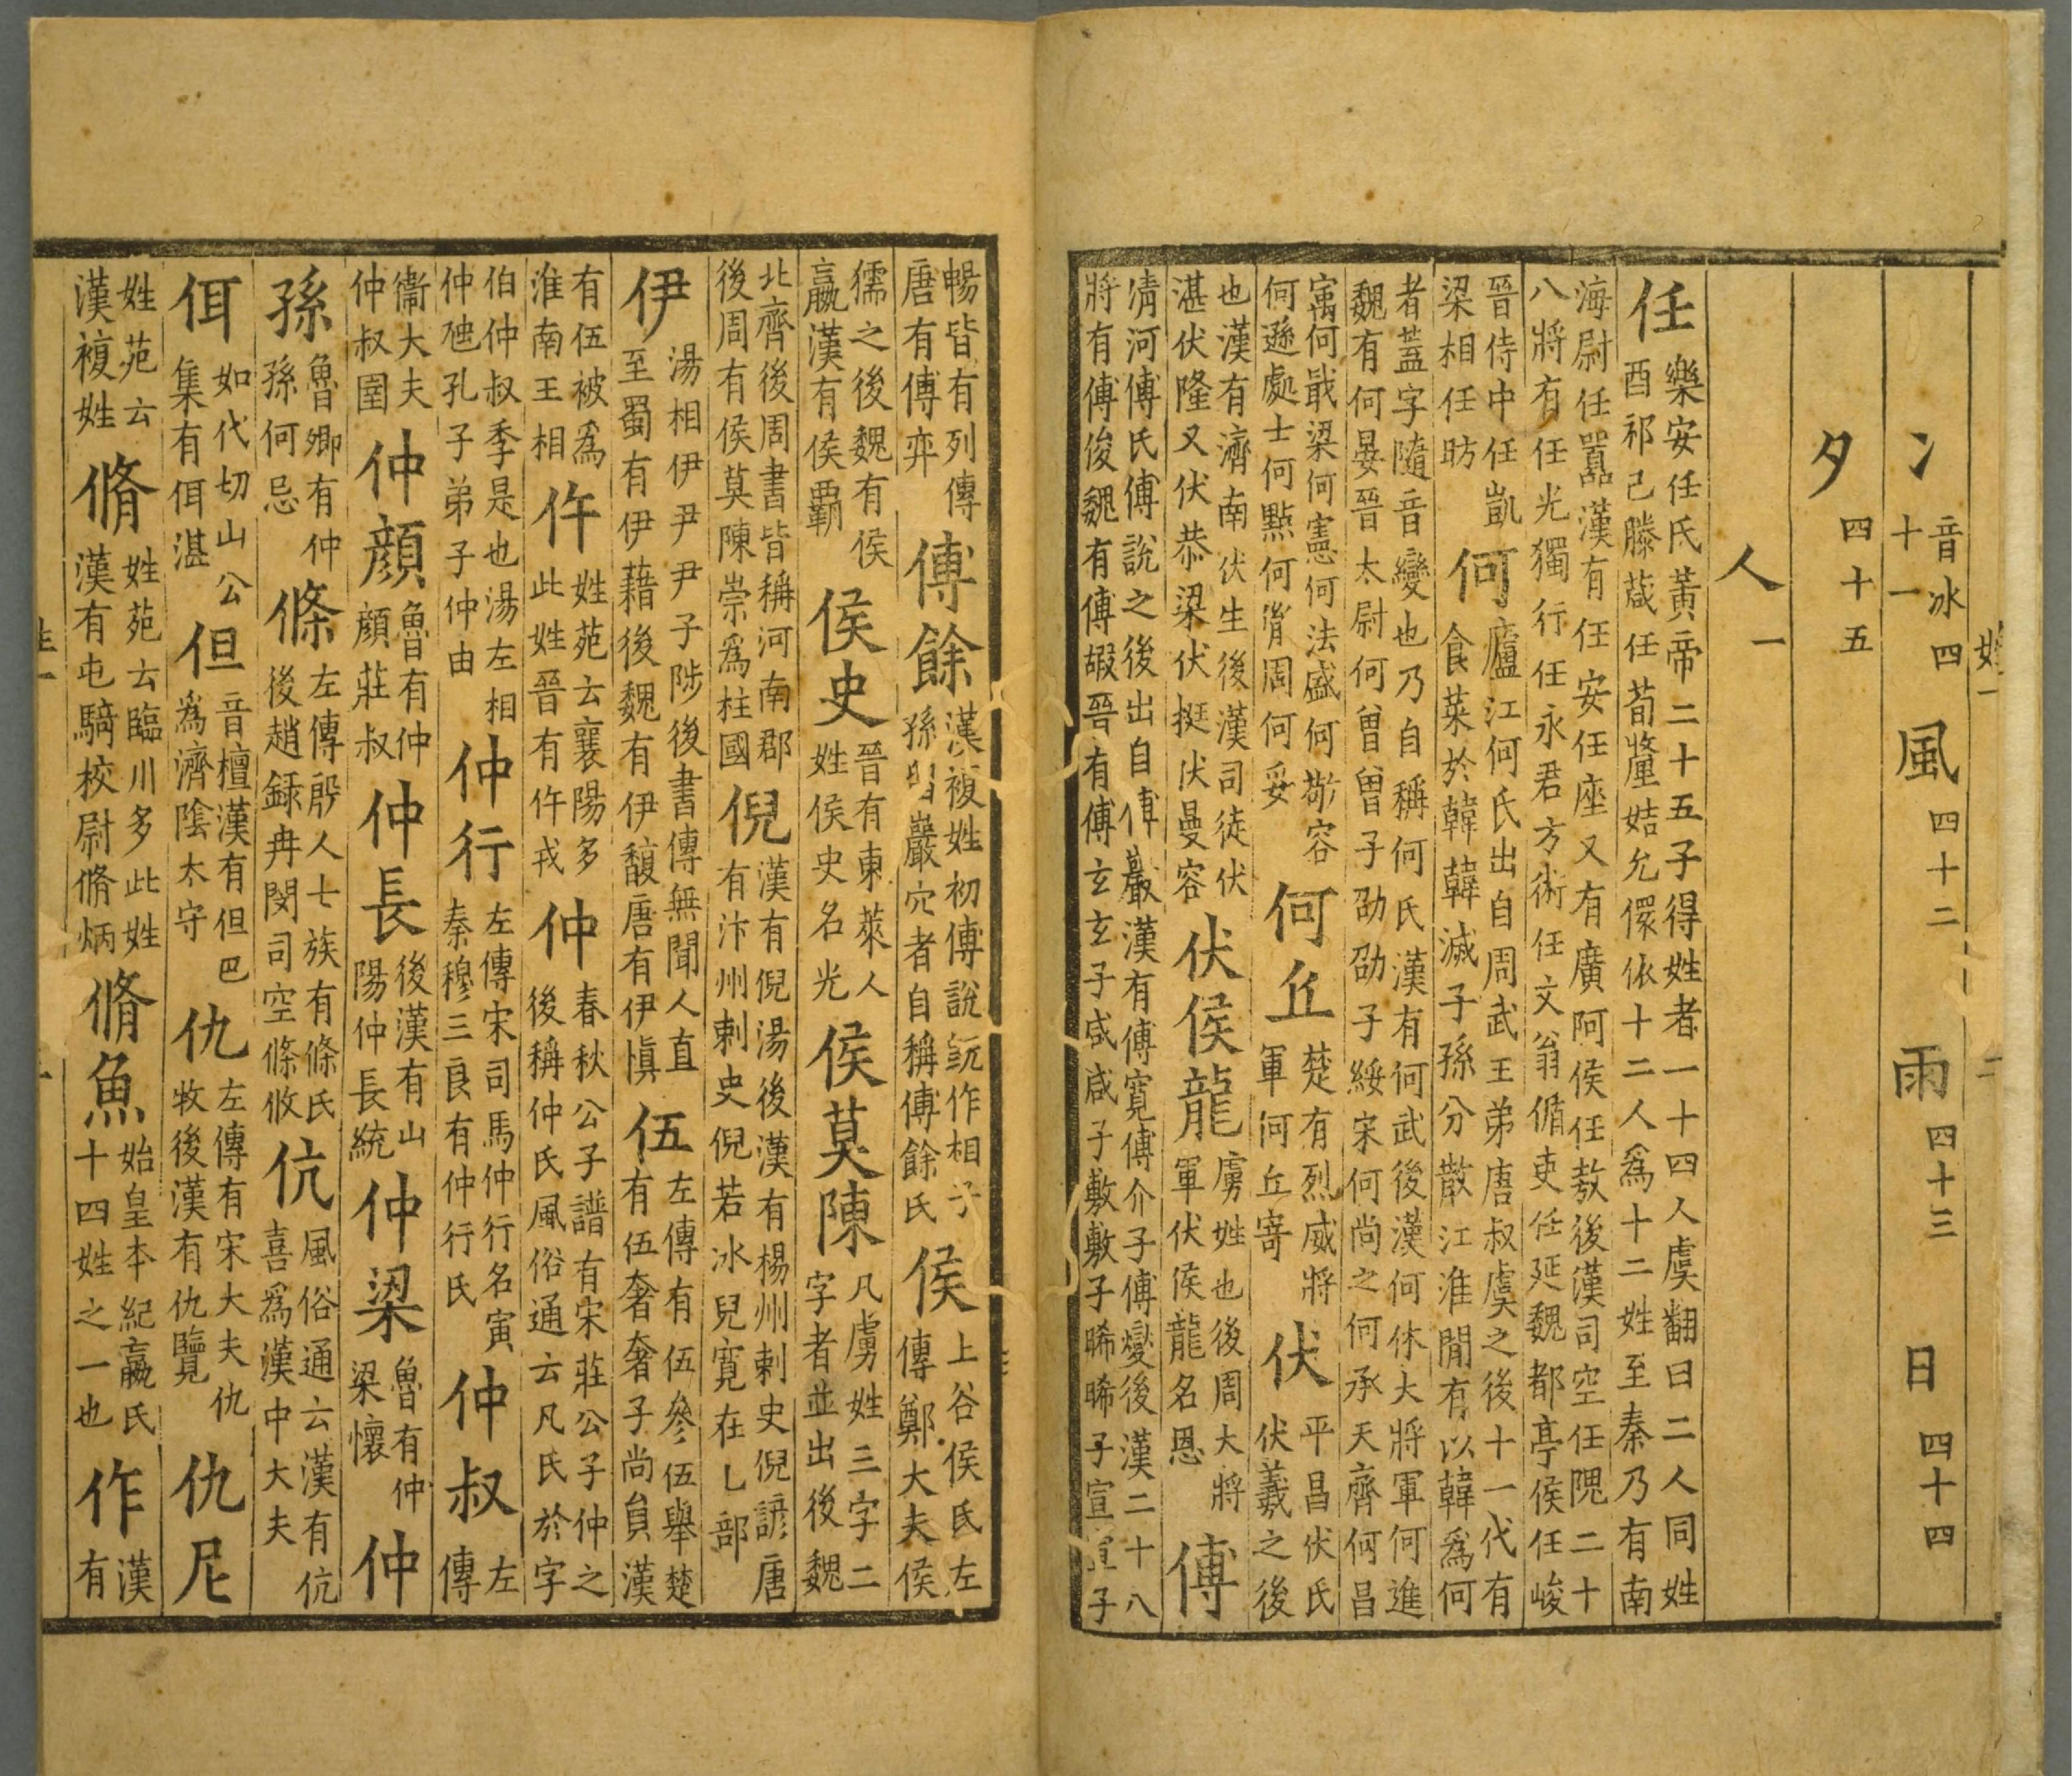 冫音冰四十一 風四十二 雨四十三 日四十四
夕四十五
人一
任樂安任氏黃帝二十五子得姓者一十四人虞翻曰二人同姓
酉祁己滕葴任荀釐姞允儇依十二人爲十二姓至秦乃有南
海尉任囂漢有任安任座又有廣阿侯任敖後漢司空任隗二十
八將有任光獨行任永君方術任文翁循吏任延魏都亭侯任峻
晉侍中任凱
梁相任昉
何廬江何氏出自周武王弟唐叔虞之後十一代有
食菜於韓韓滅子孫分散江淮閒有以韓爲何
者蓋字隨音變也乃自稱何氏漢有何武後漢何休大將軍何進
魏有何晏晉太尉何曾曾子劭劭子綏宋何尚之何承天齊何昌
㝢何戢梁何憲何法盛何敬容
何遜處士何點何胥周何妥
何丘楚有烈威將
軍何丘寄
伏平昌伏氏
伏羲之後
也漢有濟南伏生後漢司徒伏
湛伏隆又伏恭梁伏挺伏曼容
伏侯龍虜姓也後周大將
軍伏侯龍名恩
傅
清河傅氏傅說之後出自傅巖漢有傅寬傅介子傅燮後漢二十八
將有傅俊魏有傅嘏晉有傅玄玄子咸咸子敷敷子晞晞子宣宣子
暢皆有列傳
唐有傅弈
傅餘漢複姓初傅說旣作相子
孫留巖穴者自稱傅餘氏
侯上谷侯氏左
傳鄭大夫侯
儒之後魏有侯
嬴漢有侯霸
侯史晉有東萊人
姓侯史名光
侯莫陳凡虜姓三字二
字者並出後魏
北齊後周書皆稱河南郡
後周有侯莫陳崇爲柱國
倪漢有倪湯後漢有楊州刺史倪諺唐
有汴州刺史倪若冰兒寬在乚部
伊湯相伊尹尹子陟後書傳無聞人直
至蜀有伊藉後魏有伊馥唐有伊愼
伍左傳有伍參伍舉楚
有伍奢奢子尚員漢
有伍被爲
淮南王相
仵姓苑云襄陽多
此姓晉有仵戎
仲春秋公子譜有宋莊公子仲之
後稱仲氏風俗通云凡氏於字
伯仲叔季是也湯左相
仲虺孔子弟子仲由
仲行左傳宋司馬仲行名寅
秦穆三良有仲行氏
仲叔左
傳
衞大夫
仲叔圉
仲顏魯有仲
顏莊叔
仲長後漢有山
陽仲長統
仲梁魯有仲
梁懷
仲
孫魯卿有仲
孫何忌
條左傳殷人七族有條氏
後趙錄冉閔司空條攸
伉風俗通云漢有伉
喜爲漢中大夫
佴如代切山公
集有佴湛
但音檀漢有但巴
爲濟陰太守
仇左傳有宋大夫仇
牧後漢有仇覽
仇尼
姓苑云
漢複姓
脩姓苑云臨川多此姓
漢有屯騎校尉脩炳
脩魚始皇本紀嬴氏
十四姓之一也
作漢
有